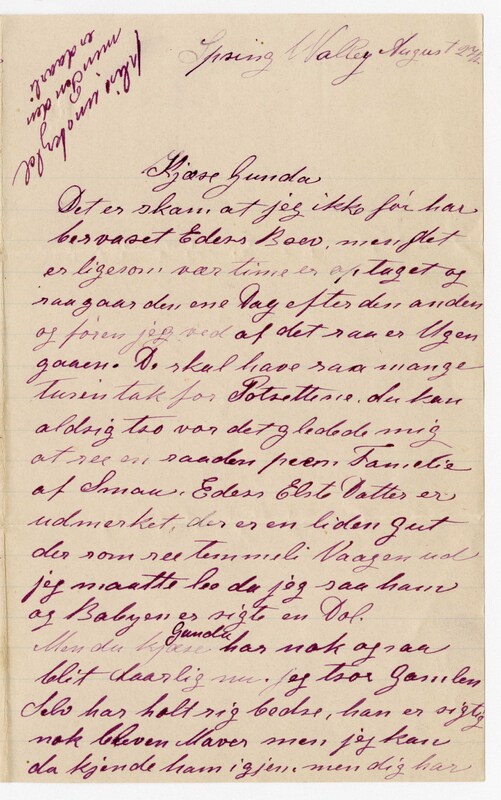 plise unskyl
men Pen den
er daarli
Spring Valley August
Kjære Gunda
Det er skam at jeg ikke før har
bervaret Eders Brev, men det
er ligesom vær time er optaget og
saa gaar den ene Dag efter den anden
og føren jeg ved af det saa er Ugen
gaaen. De skal have saa mange
tusin tak for Potrettene. du kan
aldrig tro vor det glædede mig
at see en saaden peen Familie
af Smaa. Eders Elste Datter er
udmerket, der er en liden Gut
der som see temmeli Vaagen ud
jeg maatte leo da jeg saa ham
og Babyen er rigte en Dol.
Men du kjære Gunda har nok ogsaa
blit daarlig nu. jeg tror Gamlen
Selv har holt sig bedre, han er rigtig
nok bleven Maver men jeg kan
da kjende ham igjen. men dig har